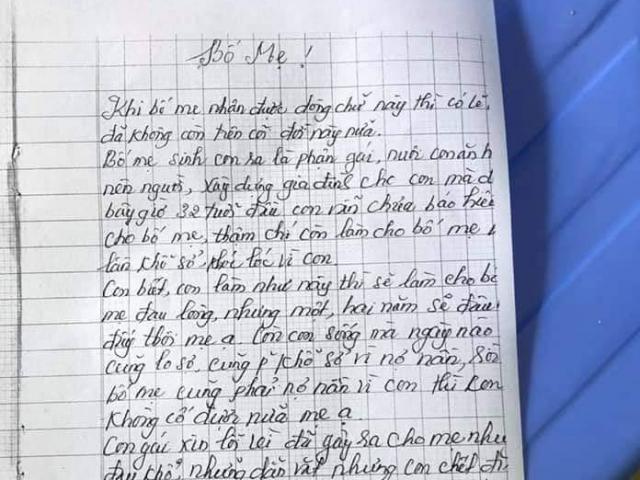 Bố Mẹ!
Khi bố mẹ nhận được dòng chữ này thì có lẽ,
đã không còn trên cõi đời này nữa.
Bố mẹ sinh con ra là phận gái, nuôi con ăn h
nên người, xây dựng gia đình cho con mà d
bây giờ 32 tuổi đầu con vẫn chưa báo hiế
cho bố mẹ, thậm chí còn làm cho bố mẹ
khổ sở vì con
Con biết, con làm như này thì sẽ làm cho bố
mẹ đau lòng, nhưng một, hai năm sẽ đâu
đấy thôi mẹ ạ. Còn con sống mà ngày nào
cũng lo sợ, cũng p' khổ sở vì nợ nần,
bố mẹ cũng phải nợ nần vì con thì con
không cố được nữa mẹ ạ
Con gái xin lỗi đã gây ra cho mẹ như
đau khổ, nhưng dằn vặt nhưng con chết đi